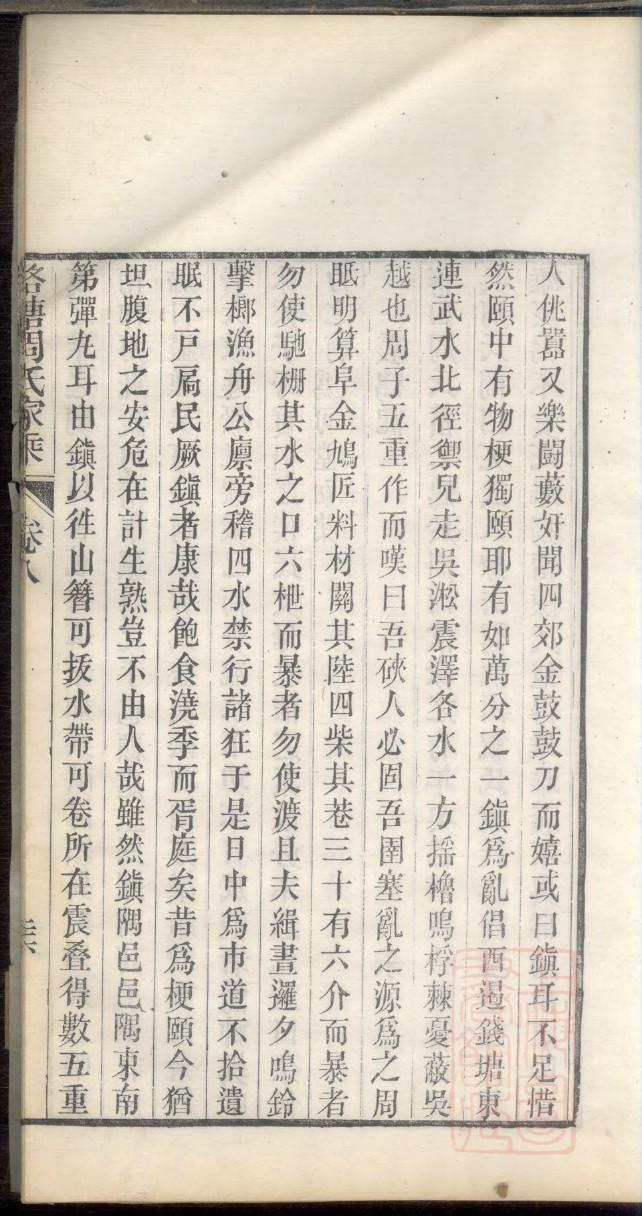 人佻嚚又樂鬭藪奸聞四郊金鼓鼓刀而嬉或曰鎭耳不足惜
然頤中有物梗獨頤耶有如萬分之一鎭爲亂倡西遏錢塘東
連武水北徑禦兒走吳淞震澤各水一方搖櫓鳴桴棘憂蔽吳
越也周子五重作而嘆曰吾硤人必固吾圉塞亂之源爲之周
眡明算阜金鳩匠料材闗其陸四柴其巷三十有六介而暴者
勿使馳柵其水之口六枻而暴者勿使渡且夫緝晝邏夕鳴鈴
擊榔漁舟公廪旁稽四水禁行諸狂于是日中爲市道不拾遺
眠不戸扄民厥鎭者康哉飽食澆季而胥庭矣昔爲梗頤今猶
坦腹地之安危在計生熟豈不由人哉雖然鎭隅邑邑隅東南
第彈丸耳由鎭以徃山簪可拔水帶可卷所在震叠得數五重
周氏家乘 卷八